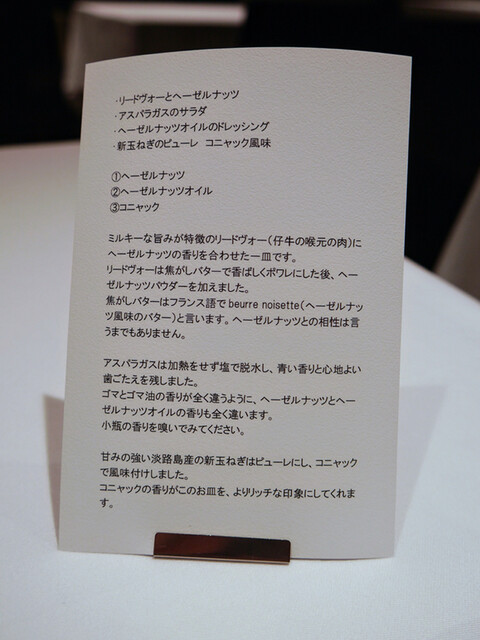 ・リードヴォーとヘーゼルナッツ
・アスパラガスのサラダ
・ヘーゼルナッツオイルのドレッシング
・新玉ねぎのピューレ コニャック風味
①ヘーゼルナッツ
②ヘーゼルナッツオイル
③コニャック
ミルキーな旨みが特徴のリードヴォー(仔牛の喉元の肉)に
ヘーゼルナッツの香りを合わせた一皿です。
リードヴォーは焦がしバターで香ばしくポワレにした後、ヘー
ゼルナッツパウダーを加えました。
焦がしバターはフランス語でbeurre noisette(ヘーゼルナッ
ツ風味のバター)と言います。ヘーゼルナッツとの相性は言
うまでもありません。
アスパラガスは加熱をせず塩で脱水し、青い香りと心地よい
歯ごたえを残しました。
ゴマとゴマ油の香りが全く違うように、ヘーゼルナッツとヘー
ゼルナッツオイルの香りも全く違います。
小瓶の香りを嗅いでみてください。
甘みの強い淡路島産の新玉ねぎはピューレにし、コニャック
で風味付けしました。
コニャックの香りがこのお皿を、よりリッチな印象にしてくれま
す。